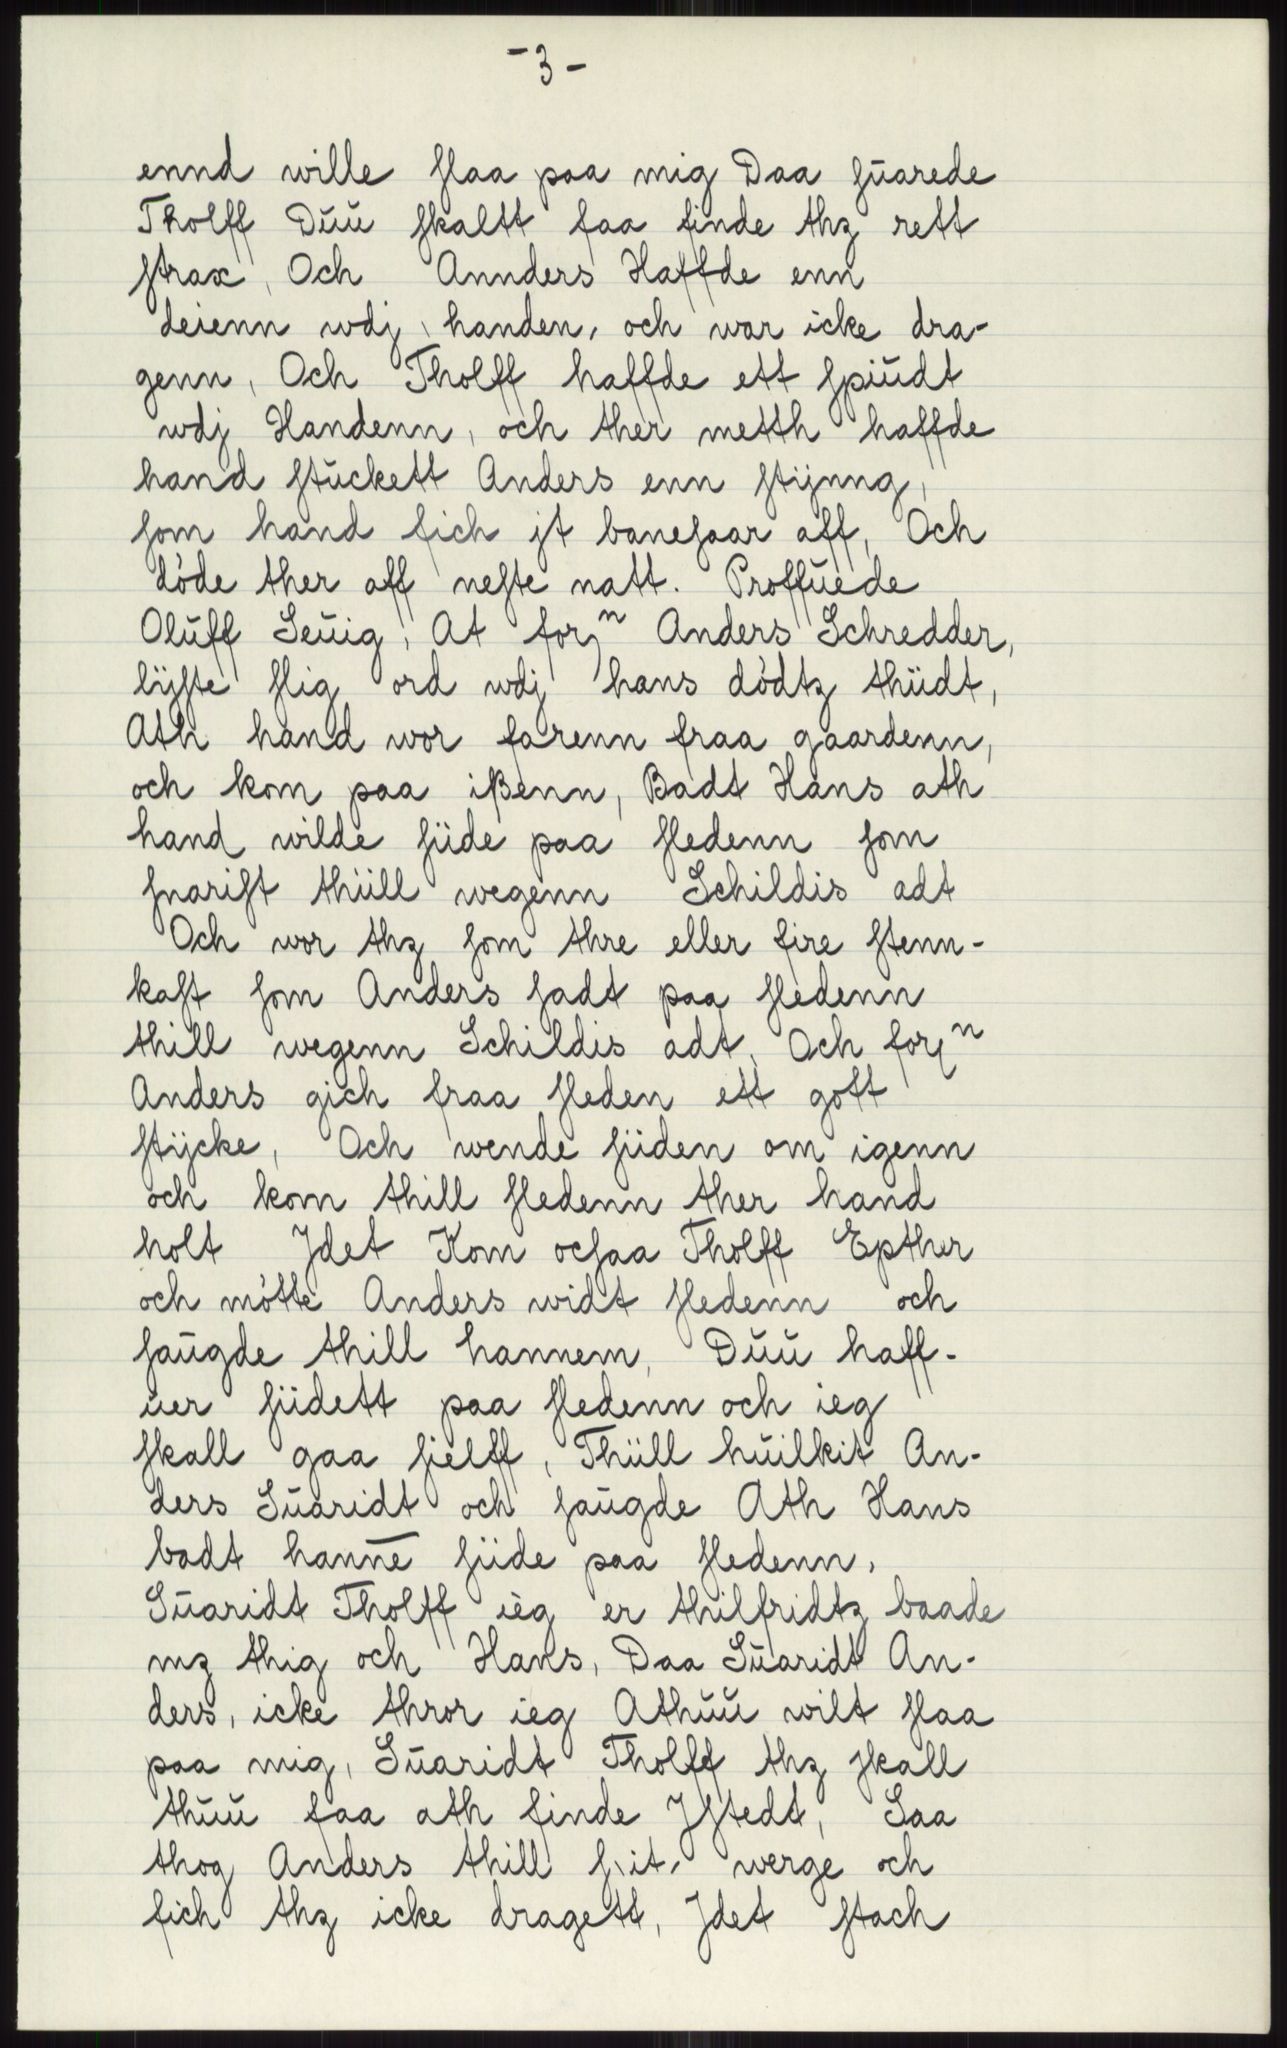 -3-
ennd wille slaa paa mig Daa suarede
Tholff Duu skaltt faa finde thz rett
strax, Och Annders Haffde enn
deienn wdj handen, och war icke dra-
genn, Och Tholff haffde ett spiudt
wdj Handenn, och ther metth haffde
hand stuckett Anders enn stijnng,
som hand fich jt banesaar aff, Och
döde ther aff neste natt. Proffuede
Oluff Seuig, At forⁿ Anders Schredder,
lyste slig ord wdj hans dödtz thiidt,
Ath hand wor farenn fraa gaardenn,
och kom paa ißenn, Badt Hans ath
hand wilde siide paa sledenn som
snarist thiill wegenn Schildis adt
Och wor thz som thre eller fire stenn-
kast som Anders sadt paa sledenn
thill wegenn Schildis adt, Och forⁿ
Anders gich fraa sleden ett gott
stycke, Och wende siiden om igenn
och kom thill sledenn ther hand
holt Jdet Kom ocsaa Tholff Epther
och mötte Anders widt sledenn och
saugde thill hannem, Duu haff-
uer siidett paa sledenn och ieg
skall gaa sielff, Thiill huilkit An-
ders Suaridt och saugde Ath Hans
badt hannē siide paa sledenn,
Suaridt Tholff ieg er thilfridtz baade
mz thig och Hans, Daa Suaridt An-
ders, icke thror ieg Athuu wilt slaa
paa mig, Suaridt Tholff thz skall
thuu faa ath finde Jstedt, Saa
thog Anders thill sit werge och
fich thz icke dragett, Jdet stach